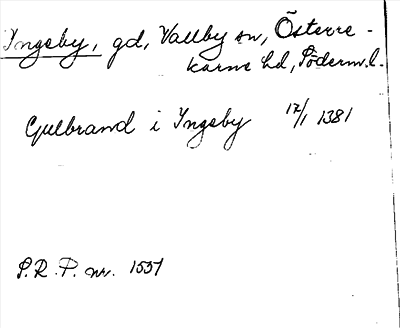 Yngeby, gd, Vallby sn, Österre-
karne hd, Söderm.l.
Gulbrand i Yngeby 17/1 1381
S.R.P. nr. 1551